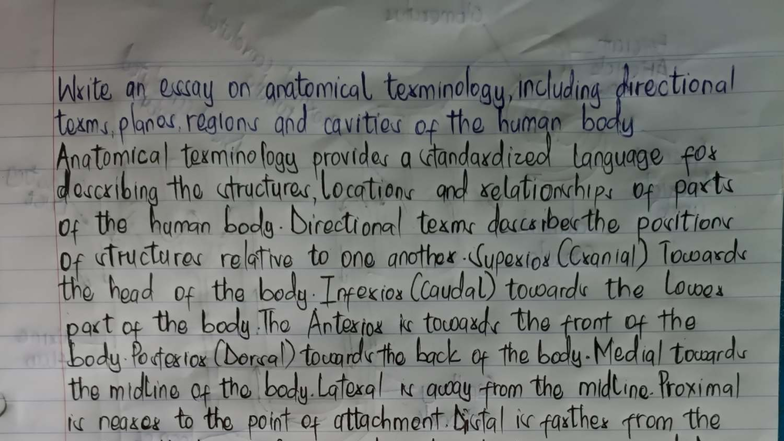 Write an essay on anatomical terminology, including directional
terms, planes, regions and cavities of the human body
Anatomical terminology provides a standardized language for
describing the structures, locations and relationships of parts
of the human body. Directional terms describes the positions
of structures relative to one another. Superior (Cranial) Towards
the head of the body. Inferior (Caudal) towards the lower
part of the body. The Anterior is towards the front of the
body. Posterior (Dorsal) towards the back of the body. Medial towards
the midline of the body. Lateral is away from the midline. Proximal
is nearer to the point of attachment. Distal is farther from the